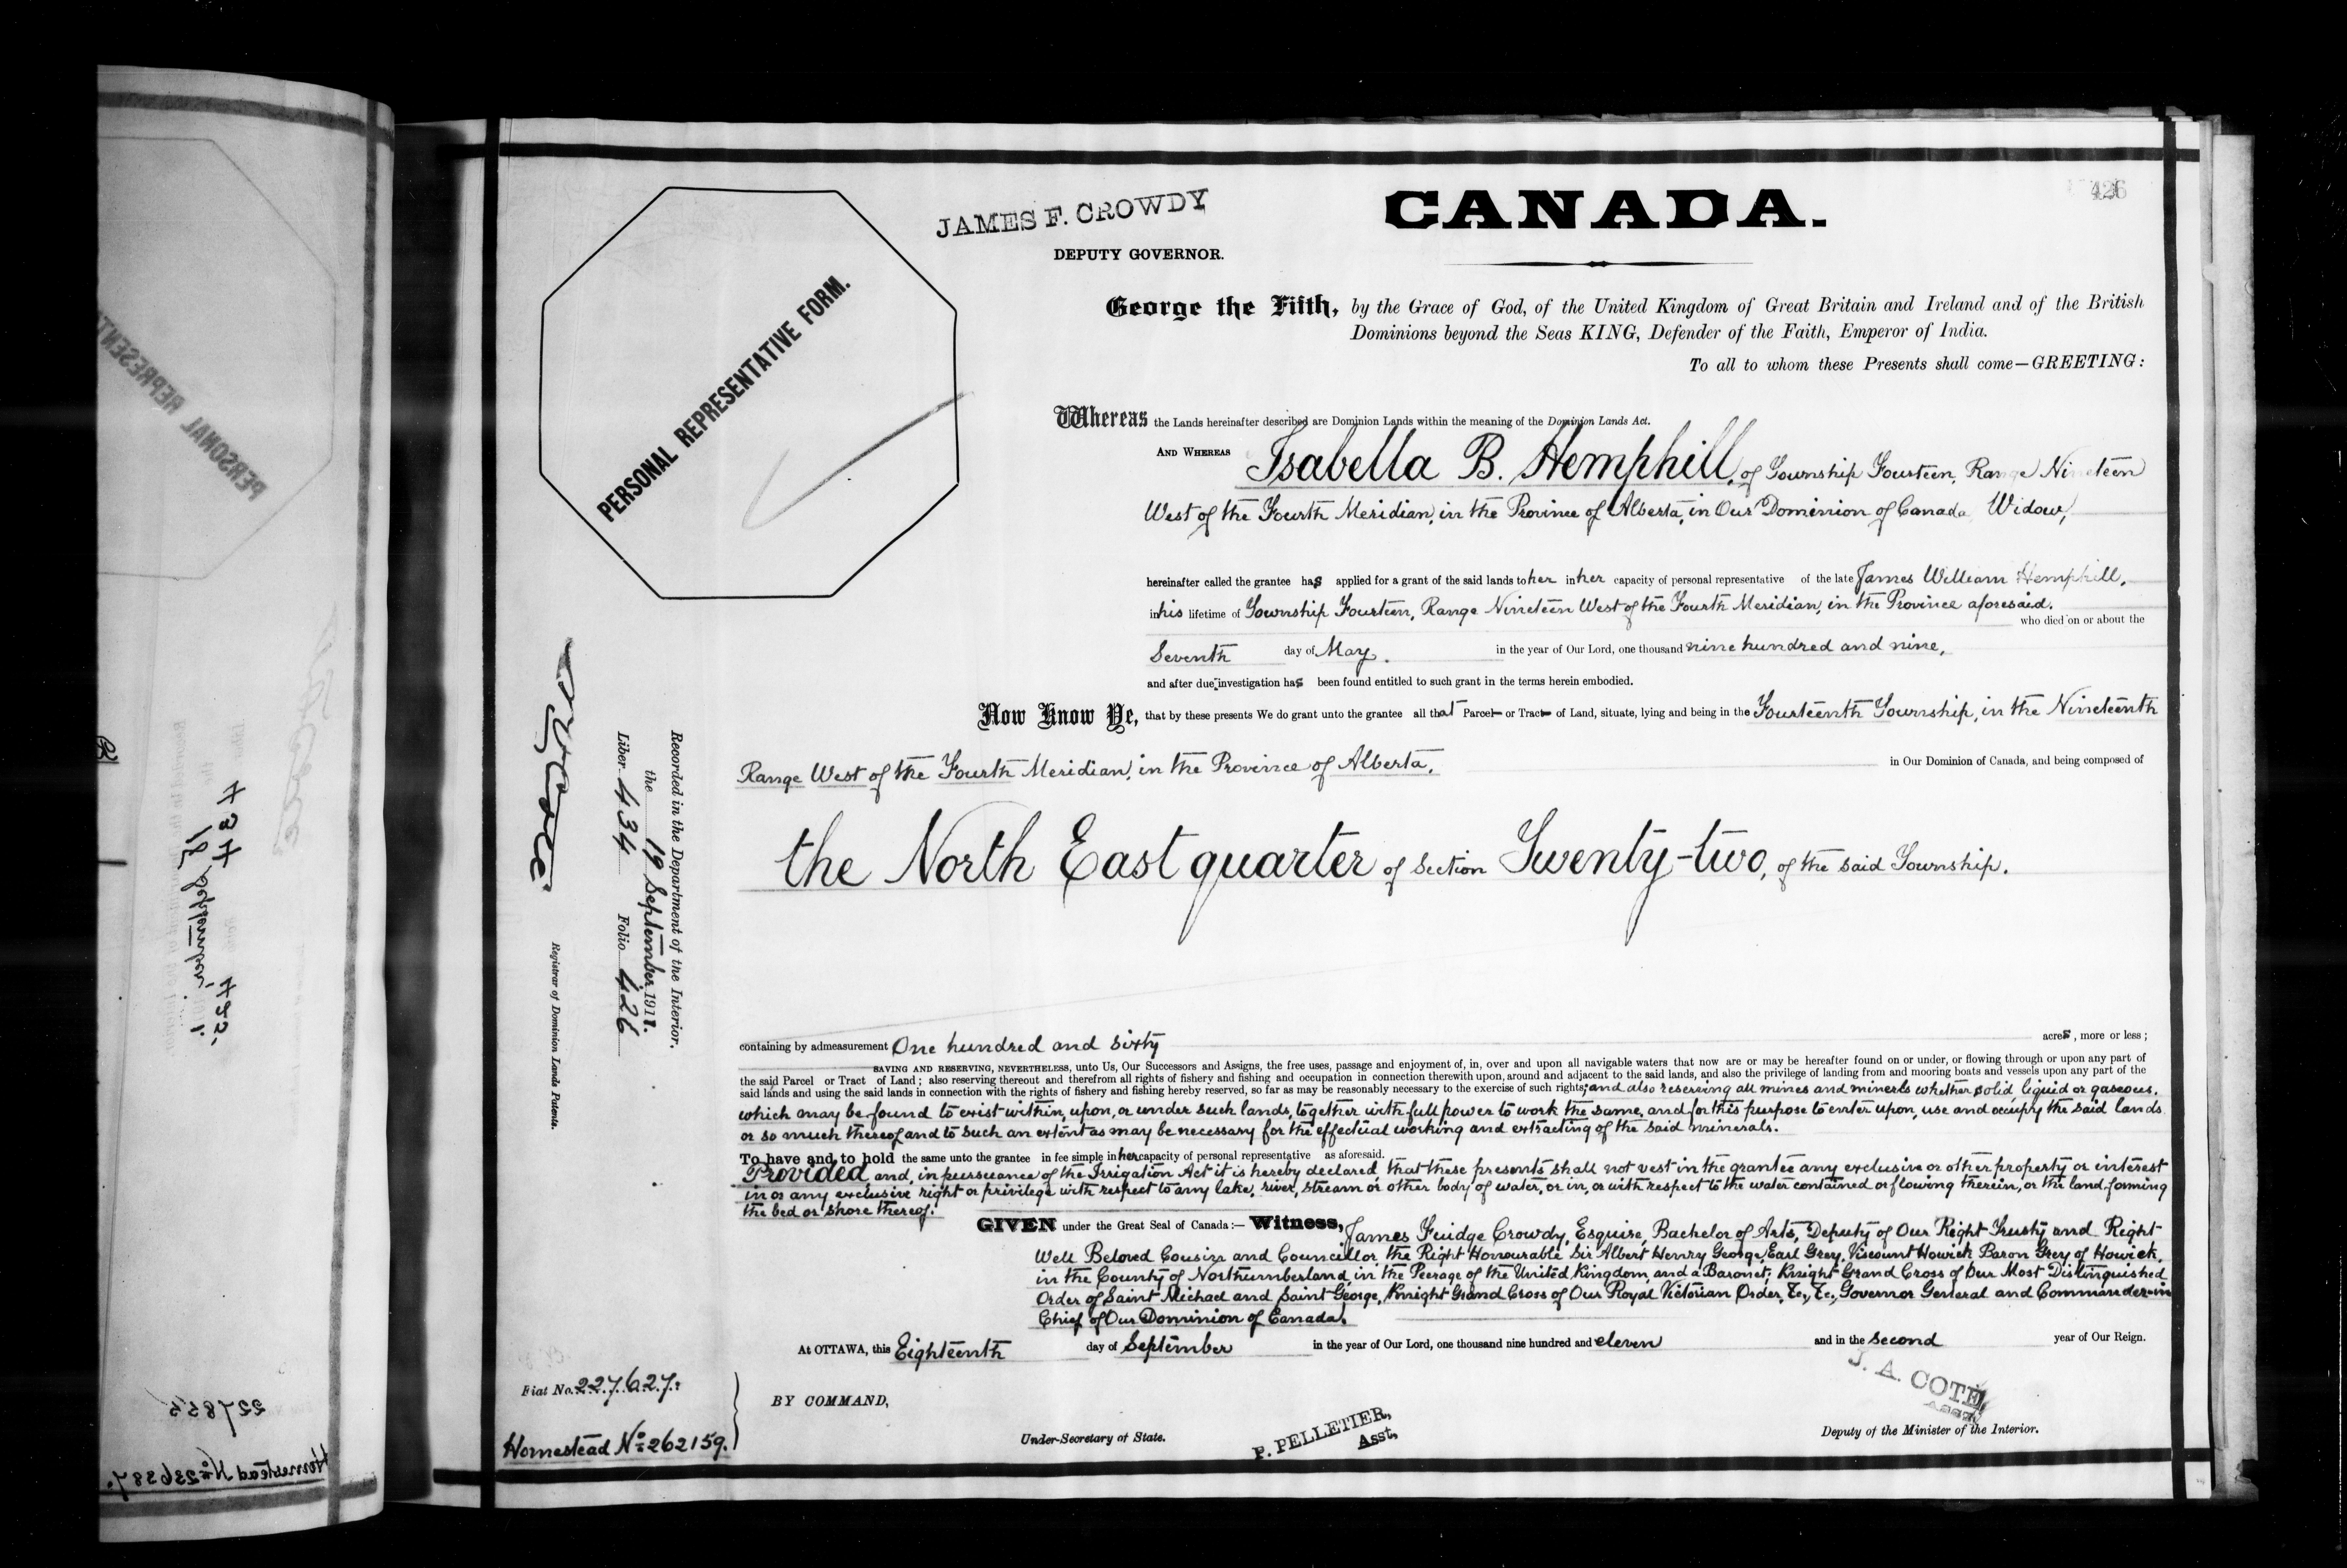 426
JAMES F. CROWDY
DEPUTY GOVERNOR.
CANADA.
PERSONAL REPRESENTATIVE FORM.
George the Fifth, by the Grace of God, of the United Kingdom of Great Britain and Ireland and of the British
Dominions beyond the Seas KING, Defender of the Faith, Emperor of India.
To all to whom these Presents shall come—GREETING:
Whereas the Lands hereinafter described are Dominion Lands within the meaning of the Dominion Lands Act.
AND WHEREAS Isabella B. Hemphill, of Township Fourteen, Range Nineteen
West of the Fourth Meridian, in the Province of Alberta, in Our Dominion of Canada Widow,
hereinafter called the grantee has applied for a grant of the said lands to her in her capacity of personal representative of the late James William Hemphill,
in his lifetime of Township Fourteen, Range Nineteen West of the Fourth Meridian, in the Province aforesaid.
who died on or about the
Seventh day of May. in the year of Our Lord, one thousand nine hundred and nine,
and after due investigation has been found entitled to such grant in the terms herein embodied.
Now Know Ye, that by these presents We do grant unto the grantee all that Parcel or Tract of Land, situate, lying and being in the Fourteenth Township, in the Nineteenth
Range West of the Fourth Meridian, in the Province of Alberta, in Our Dominion of Canada, and being composed of
the North East quarter of Section Twenty-two, of the said Township.
containing by admeasurement One hundred and sixty acres, more or less;
SAVING AND RESERVING, NEVERTHELESS, unto Us, Our Successors and Assigns, the free uses, passage and enjoyment of, in, over and upon all navigable waters that now are or may be hereafter found on or under, or flowing through or upon any part of
the said Parcel or Tract of Land; also reserving thereout and therefrom all rights of fishery and fishing and occupation in connection therewith upon, around and adjacent to the said lands, and also the privilege of landing from and mooring boats and vessels upon any part of the
said lands and using the said lands in connection with the rights of fishery and fishing hereby reserved, so far as may be reasonably necessary to the exercise of such rights; and also reserving all mines and minerls whether solid liquid or gaseous.
which may be found to exist within, upon, or under such lands, together with full power to work the same, and for this purpose to enter upon, use and occupy the said lands
or so much thereof and to such an extent as may be necessary for the effectual working and extracting of the said minerals.
To have and to hold the same unto the grantee in fee simple in her capacity of personal representative as aforesaid.
Provided and, in pursuance of the Irrigation Act it is hereby declared that these presents shall not vest in the grantee any exclusive or other property or interest
in or any exclusive right or privilege with respect to any lake, river, stream or other body of water, or in, or with respect to the water contained or flowing therein, or the land forming
the bed or shore thereof.
GIVEN under the Great Seal of Canada:— Witness, James Fuidge Crowdy, Esquire, Bachelor of Arts, Deputy of Our Right Trusty and Right
Well Beloved Cousin and Councillor the Right Honourable Sir Albert Henry George, Earl Grey, Viscount Howick Baron Grey of Howick,
in the County of Northumberland, in the Peerage of the United Kingdom, and a Baronet; Knight Grand Cross of Our Most Distinguished
Order of Saint Michael and Saint George, Knight Grand Cross of Our Royal Victorian Order, &c., &c., Governor General and Commander-in
Chief of Our Dominion of Canada.
At OTTAWA, this Eighteenth day of September in the year of Our Lord, one thousand nine hundred and eleven and in the second year of Our Reign.
BY COMMAND,
J. A. COTÉ
Asst.
Under-Secretary of State.
P. PELLETIER,
Asst,
Deputy of the Minister of the Interior.
Fiat No. 227627.
Homestead No. 262159.
Recorded in the Department of the Interior.
the 19 September 1911.
Liber 434 Folio 426
Registrar of Dominion Lands Patents.
PERSONAL REPRESENT
227855
Homestead No. 236387.